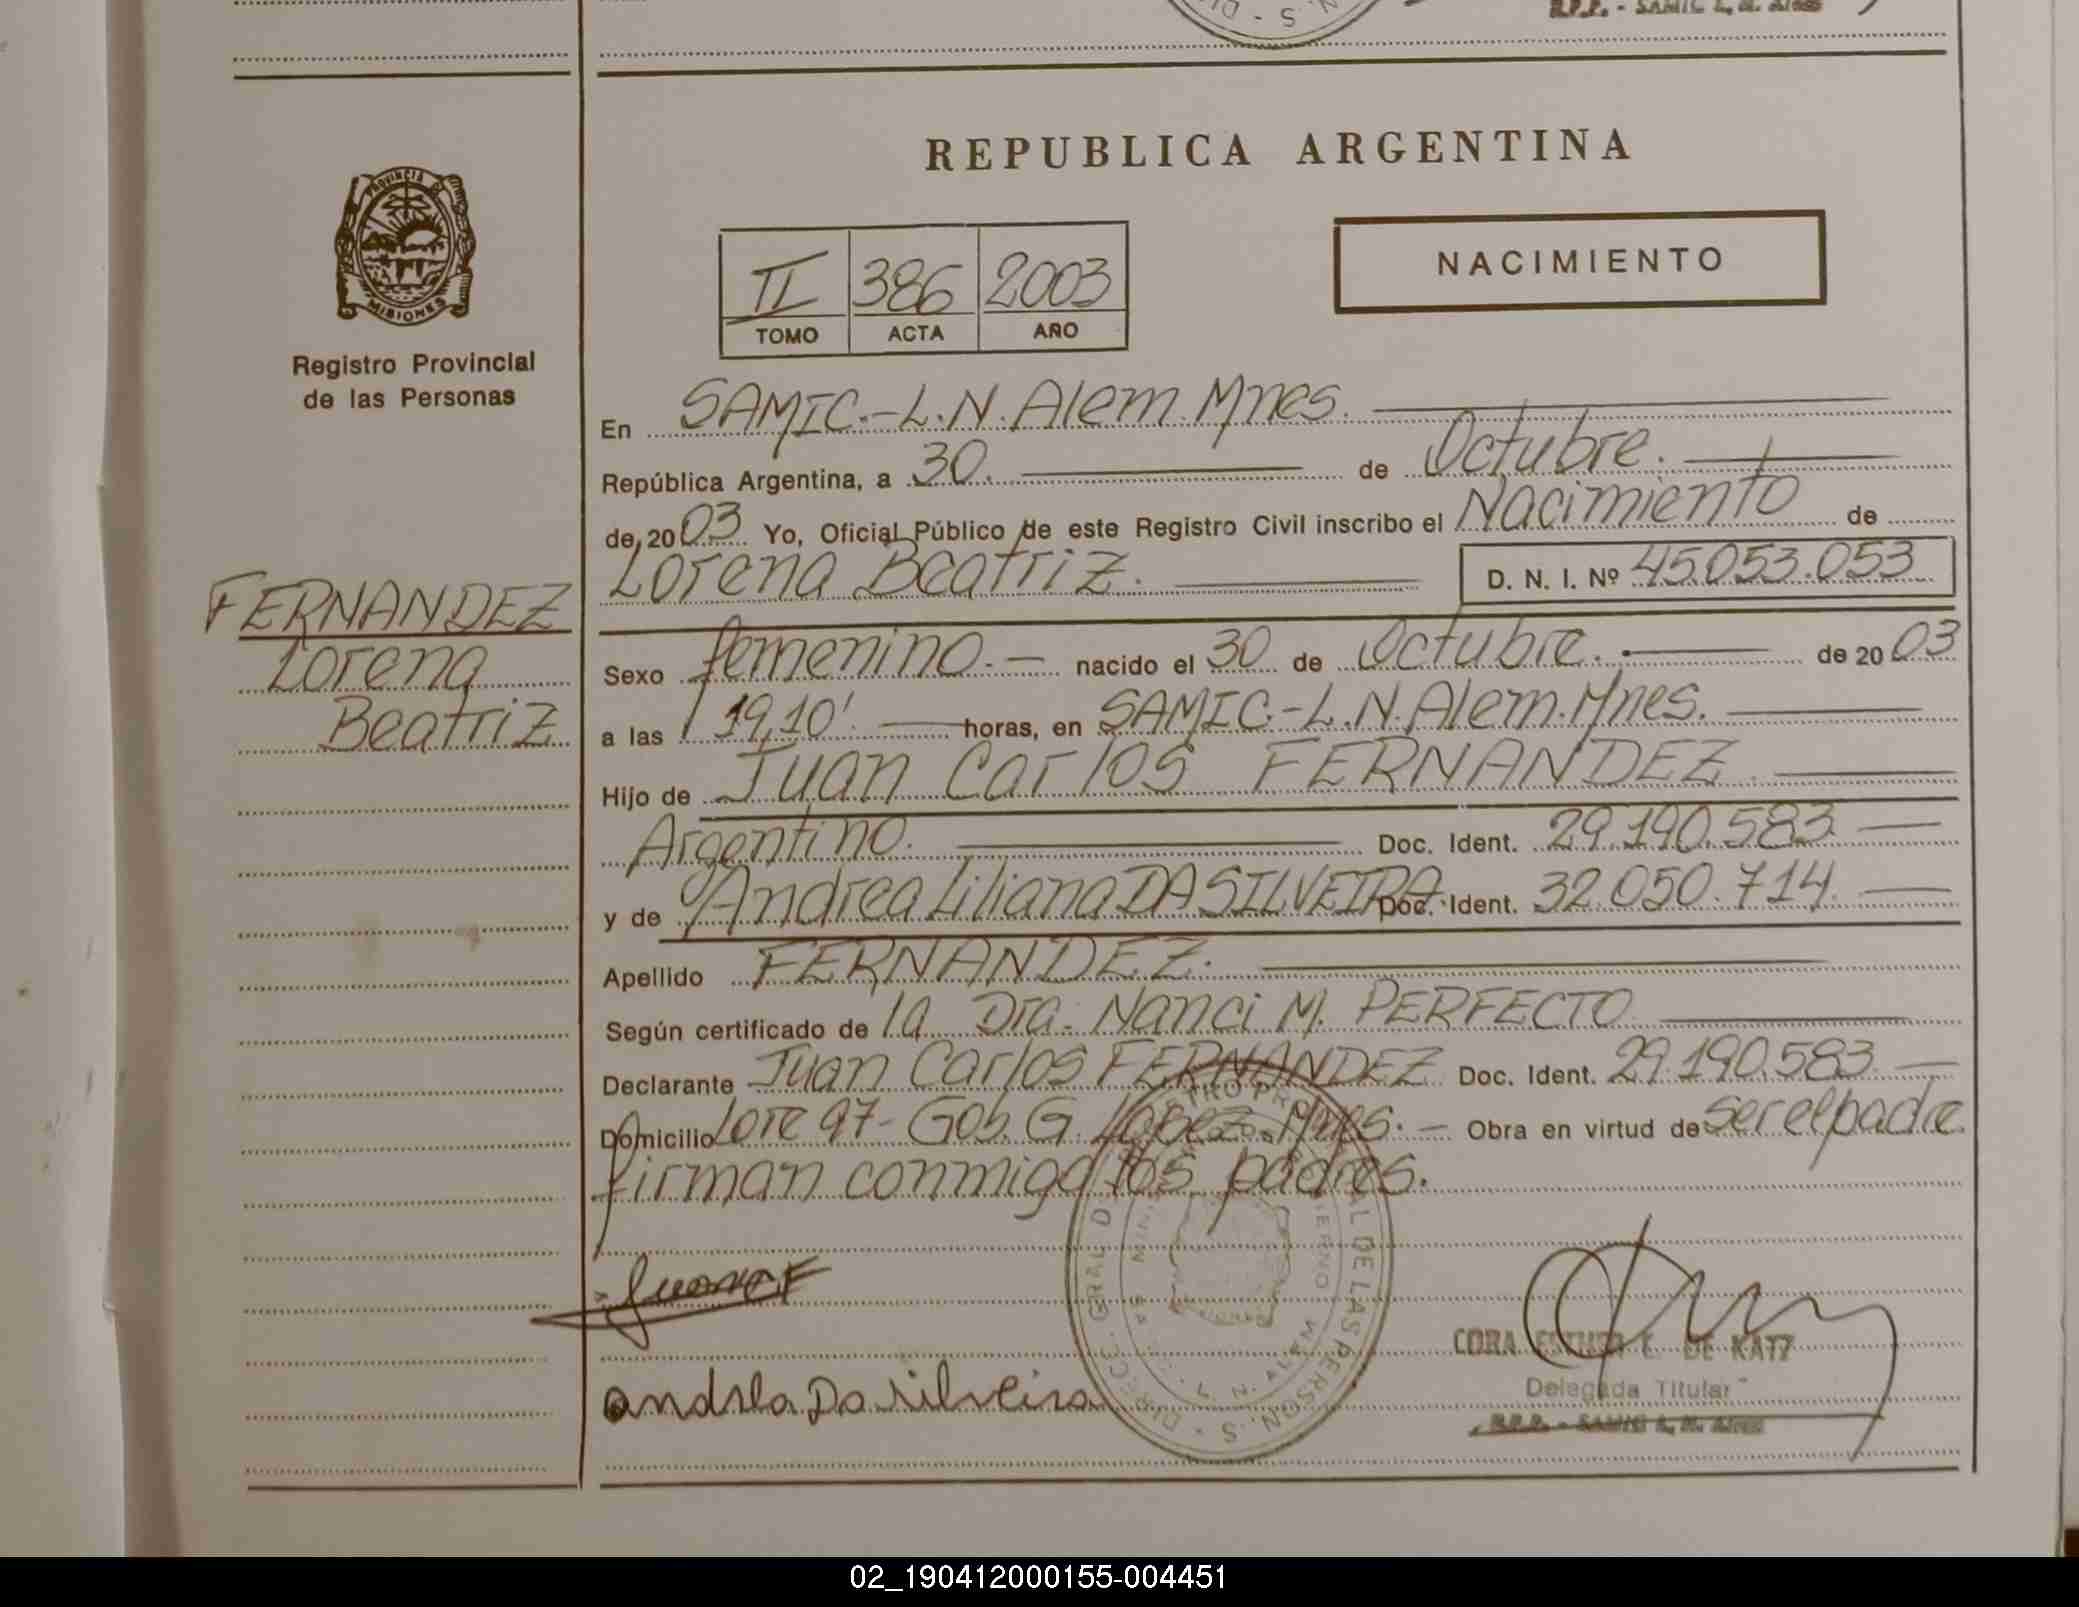 R.P.P. - SAMIC L. N. Alem
REPUBLICA ARGENTINA
PROVINCIA DE
MISIONES
Registro Provincial
de las Personas
II 386 2003
TOMO ACTA AÑO
NACIMIENTO
En SAMIC.-L.N.Alem.Mnes.
República Argentina, a 30. de Octubre.
de 2003 Yo, Oficial Público de este Registro Civil inscribo el Nacimiento de
Lorena Beatriz. D. N. I. Nº 45.053.053
FERNANDEZ
Lorena
Beatriz
Sexo femenino.- nacido el 30 de Octubre. de 2003
a las 19,10'. horas, en SAMIC.-L.N.Alem.Mnes.
Hijo de Juan Carlos FERNANDEZ.
Argentino. Doc. Ident. 29.190.583.
y de Andrea Liliana DA SILVEIRA Doc. Ident. 32.050.714.
Apellido FERNANDEZ.
Según certificado de la Dra. Nanci M. PERFECTO
Declarante Juan Carlos FERNANDEZ Doc. Ident. 29.190.583.
Domicilio Lote 97- Gob. G. Lopez. Mnes.- Obra en virtud de ser el padre
firman conmigo los padres.
Juan F
andrea Da silveira
CORA ESTHER E. DE KATZ
Delegada Titular
R.P.P. - SAMIC L. N. Alem
02_190412000155-004451